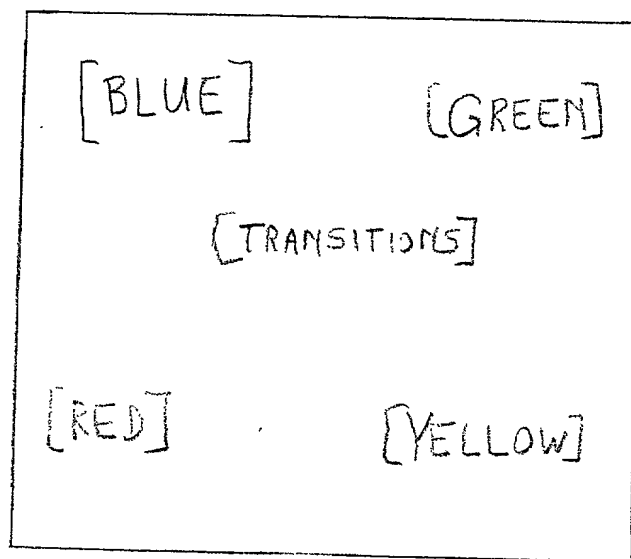 [BLUE] [GREEN]
[TRANSITIONS]
[RED] [YELLOW]